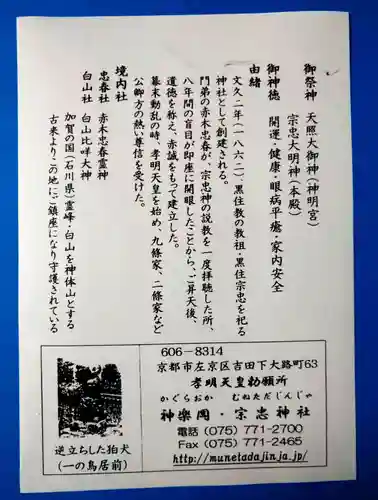 御祭神　天照大御神（神明宮）
宗忠大明神（本殿）
御神徳　開運・健康・眼病平癒・家内安全
由緒
文久二年（一八六二）、黒住教の教祖・黒住宗忠を祀る
神社として創建される。
門弟の赤木忠春が、宗忠神の説教を一度拝聴した所、
八年間の盲目が即座に開眼したことから、ご昇天後、
道徳を称え、赤誠をもって建立した。
幕末動乱の時、孝明天皇を始め、九條家、二條家など
公卿方の熱い尊信を受けた。
境内社
忠春社　赤木忠春霊神
白山社　白山比咩大神
加賀の国（石川県）霊峰・白山を神体山とする
古来よりこの地にご鎮座になり守護されている
逆立ちした狛犬
（一の鳥居前）
606-8314
京都市左京区吉田下大路町63
孝明天皇勅願所
かぐらおか　むねただじんじゃ
神楽岡・宗忠神社
電話 (075) 771-2700
Fax (075) 771-2465
http://munetadajinja.jp/